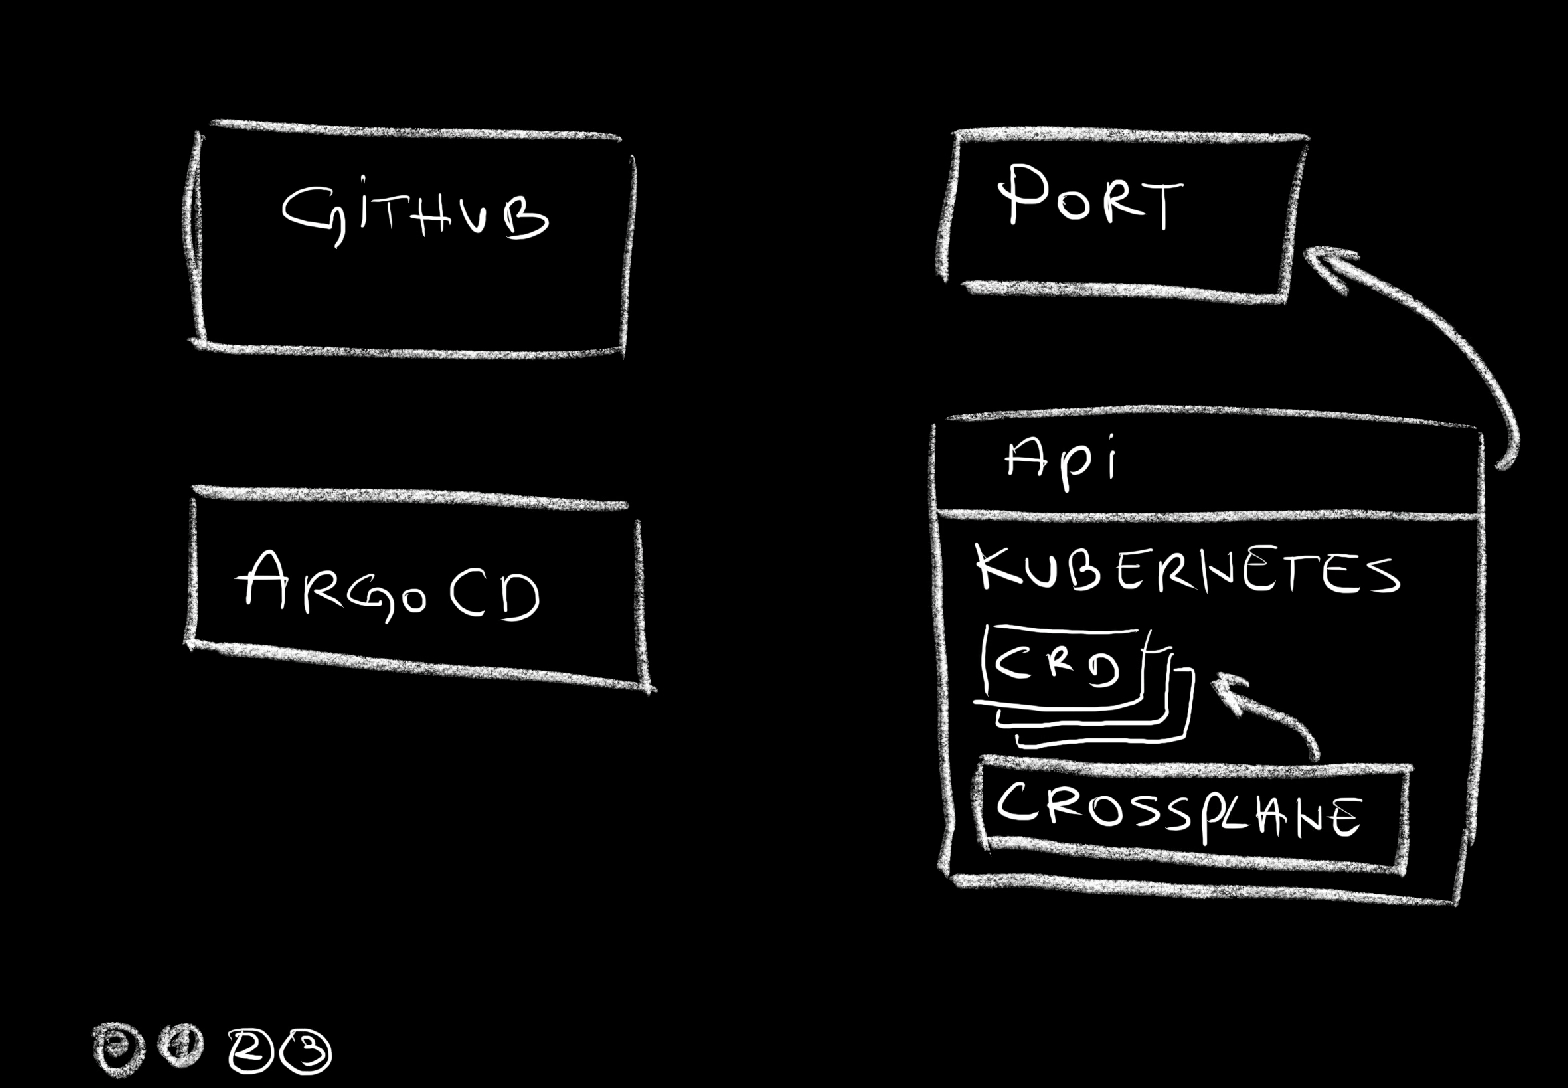 GiTHUB
PORT
Api
ARGO CD
KUBERNETES
CRD
CROSSPLANE
1 2 3